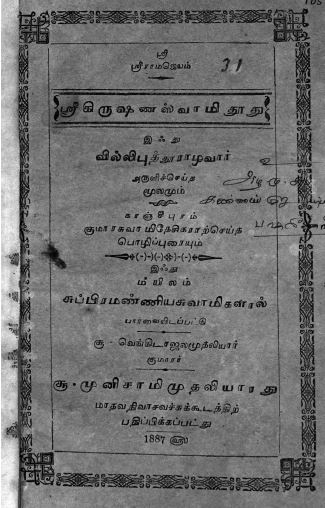 ஸ்ரீ
ஸ்ரீராமஜெயம்
31
ஸ்ரீகிருஷ்ணஸ்வாமிதூது
இஃது
வில்லிபுத்தூராழவார்
அருளிச்செய்த
மூலமும்
காஞ்சிபுரம்
குமாரசுவாமிதேசிகராற்செய்த
பொழிப்புரையும்
இஃது
மயிலம்
சுப்பிரமண்ணியசுவாமிகளால்
பார்வையிடப்பட்டு
சூ - வெங்கிடாஜலமுதலியார்
குமாரர்
சூ - முனிசாமிமுதலியாரது
மாதவநிவாசவச்சுக்கூடத்திற்
பதிப்பிக்கப்பட்டது
1887